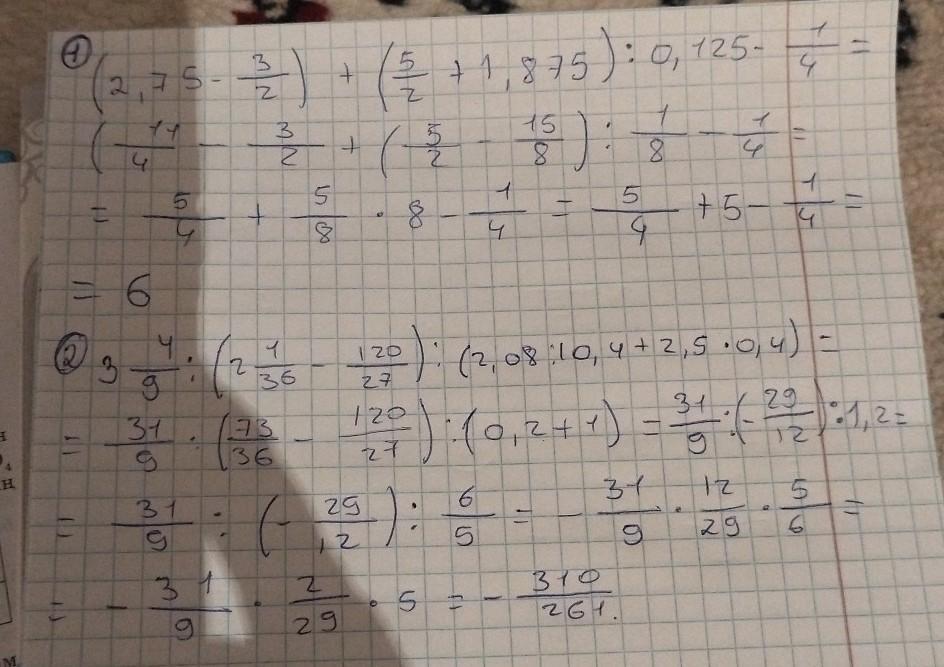 ① (2,75 - 3/2) + (5/2 + 1,875) : 0,125 - 1/4 =
(11/4 - 3/2 + (5/2 - 15/8) : 1/8 - 1/4 =
= 5/4 + 5/8 · 8 - 1/4 = 5/4 + 5 - 1/4 =
= 6
② 3 4/9 : (2 1/36 - 120/27) : (2,08 : 10,4 + 2,5 · 0,4) =
= 31/9 : (73/36 - 120/27) : (0,2 + 1) = 31/9 : (- 29/12) : 1,2 =
= 31/9 : (- 29/12) : 6/5 = - 31/9 · 12/29 · 5/6 =
= - 31/9 · 2/29 · 5 = - 310/261.